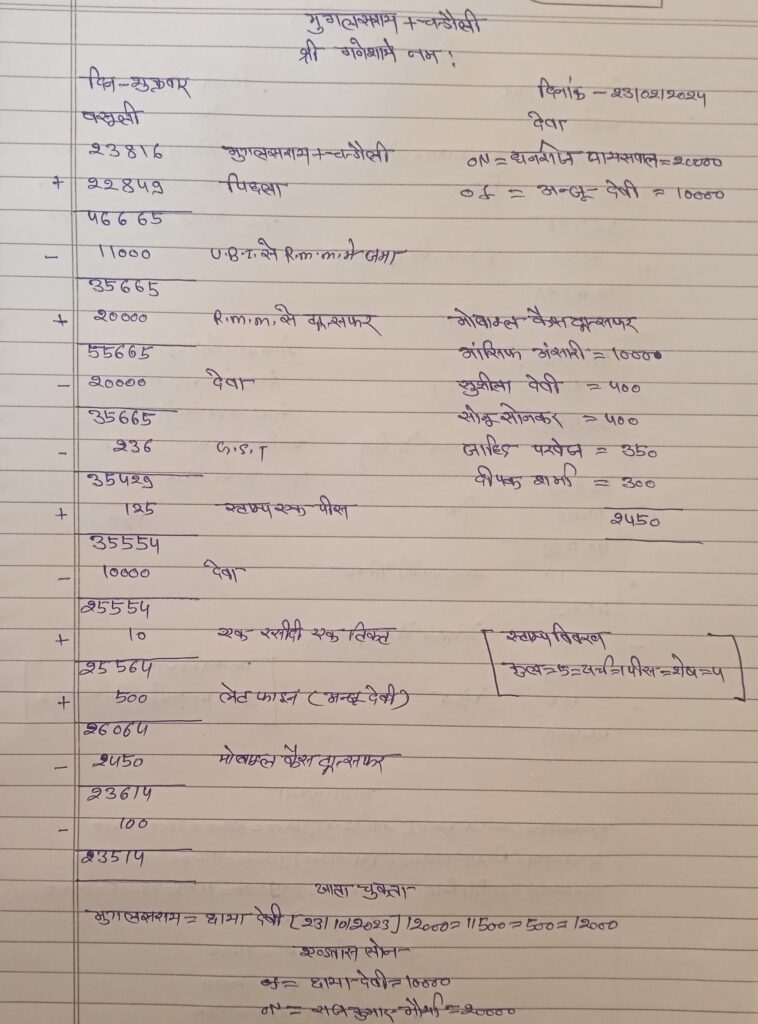 मुगलसराय + चन्दौली
श्री गणेशाये नम:
दिन - शुक्रवार
दिनांक - 23/02/2024
वसुली
देवा
23816 मुगलसराय + चन्दौली
ON = धनशीज पायसवाल = 20000
+ 22849 पिछला
of = अन्जू देवी = 10000
46665
- 11000 U.B.I. से R.m.m. मे जमा
35665
+ 20000 R.m.m. से ट्रान्सफर
मोबाइल कैस ट्रान्सफर
55665
आसिफ अंसारी = 1000
- 20000 देवा
सुशीला देवी = 400
35665
सोनू सोनकर = 400
- 236 G.S.T
जाहिद परवेज = 350
35429
दीपक शर्मा = 300
+ 125 स्टाम्प एक पीस
2450
35554
- 10000 देवा
25554
+ 10 एक रसीदी एक टिकट
स्टाम्प विवरण
25564
कुल = 5 = खर्च = 1 पीस = शेष = 4
+ 500 लेट फाइन (अन्जू देवी)
26064
- 2450 मोबाइल कैस ट्रान्सफर
23614
- 100
23514
खाता चुकता
मुगलसराय = छाया देवी [23/10/2023] 12000 = 11500 = 500 = 12000
एडवांस लोन
of = छाया देवी = 10000
ON = राजकुमार मौर्या = 20000